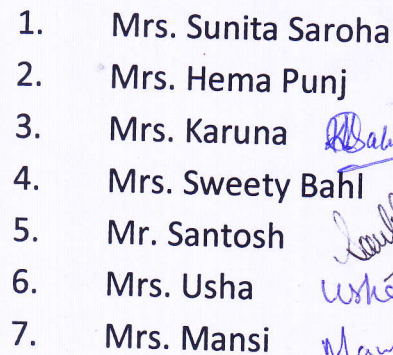 1. Mrs. Sunita Saroha
2. Mrs. Hema Punj
3. Mrs. Karuna
4. Mrs. Sweety Bahl
5. Mr. Santosh
6. Mrs. Usha
7. Mrs. Mansi